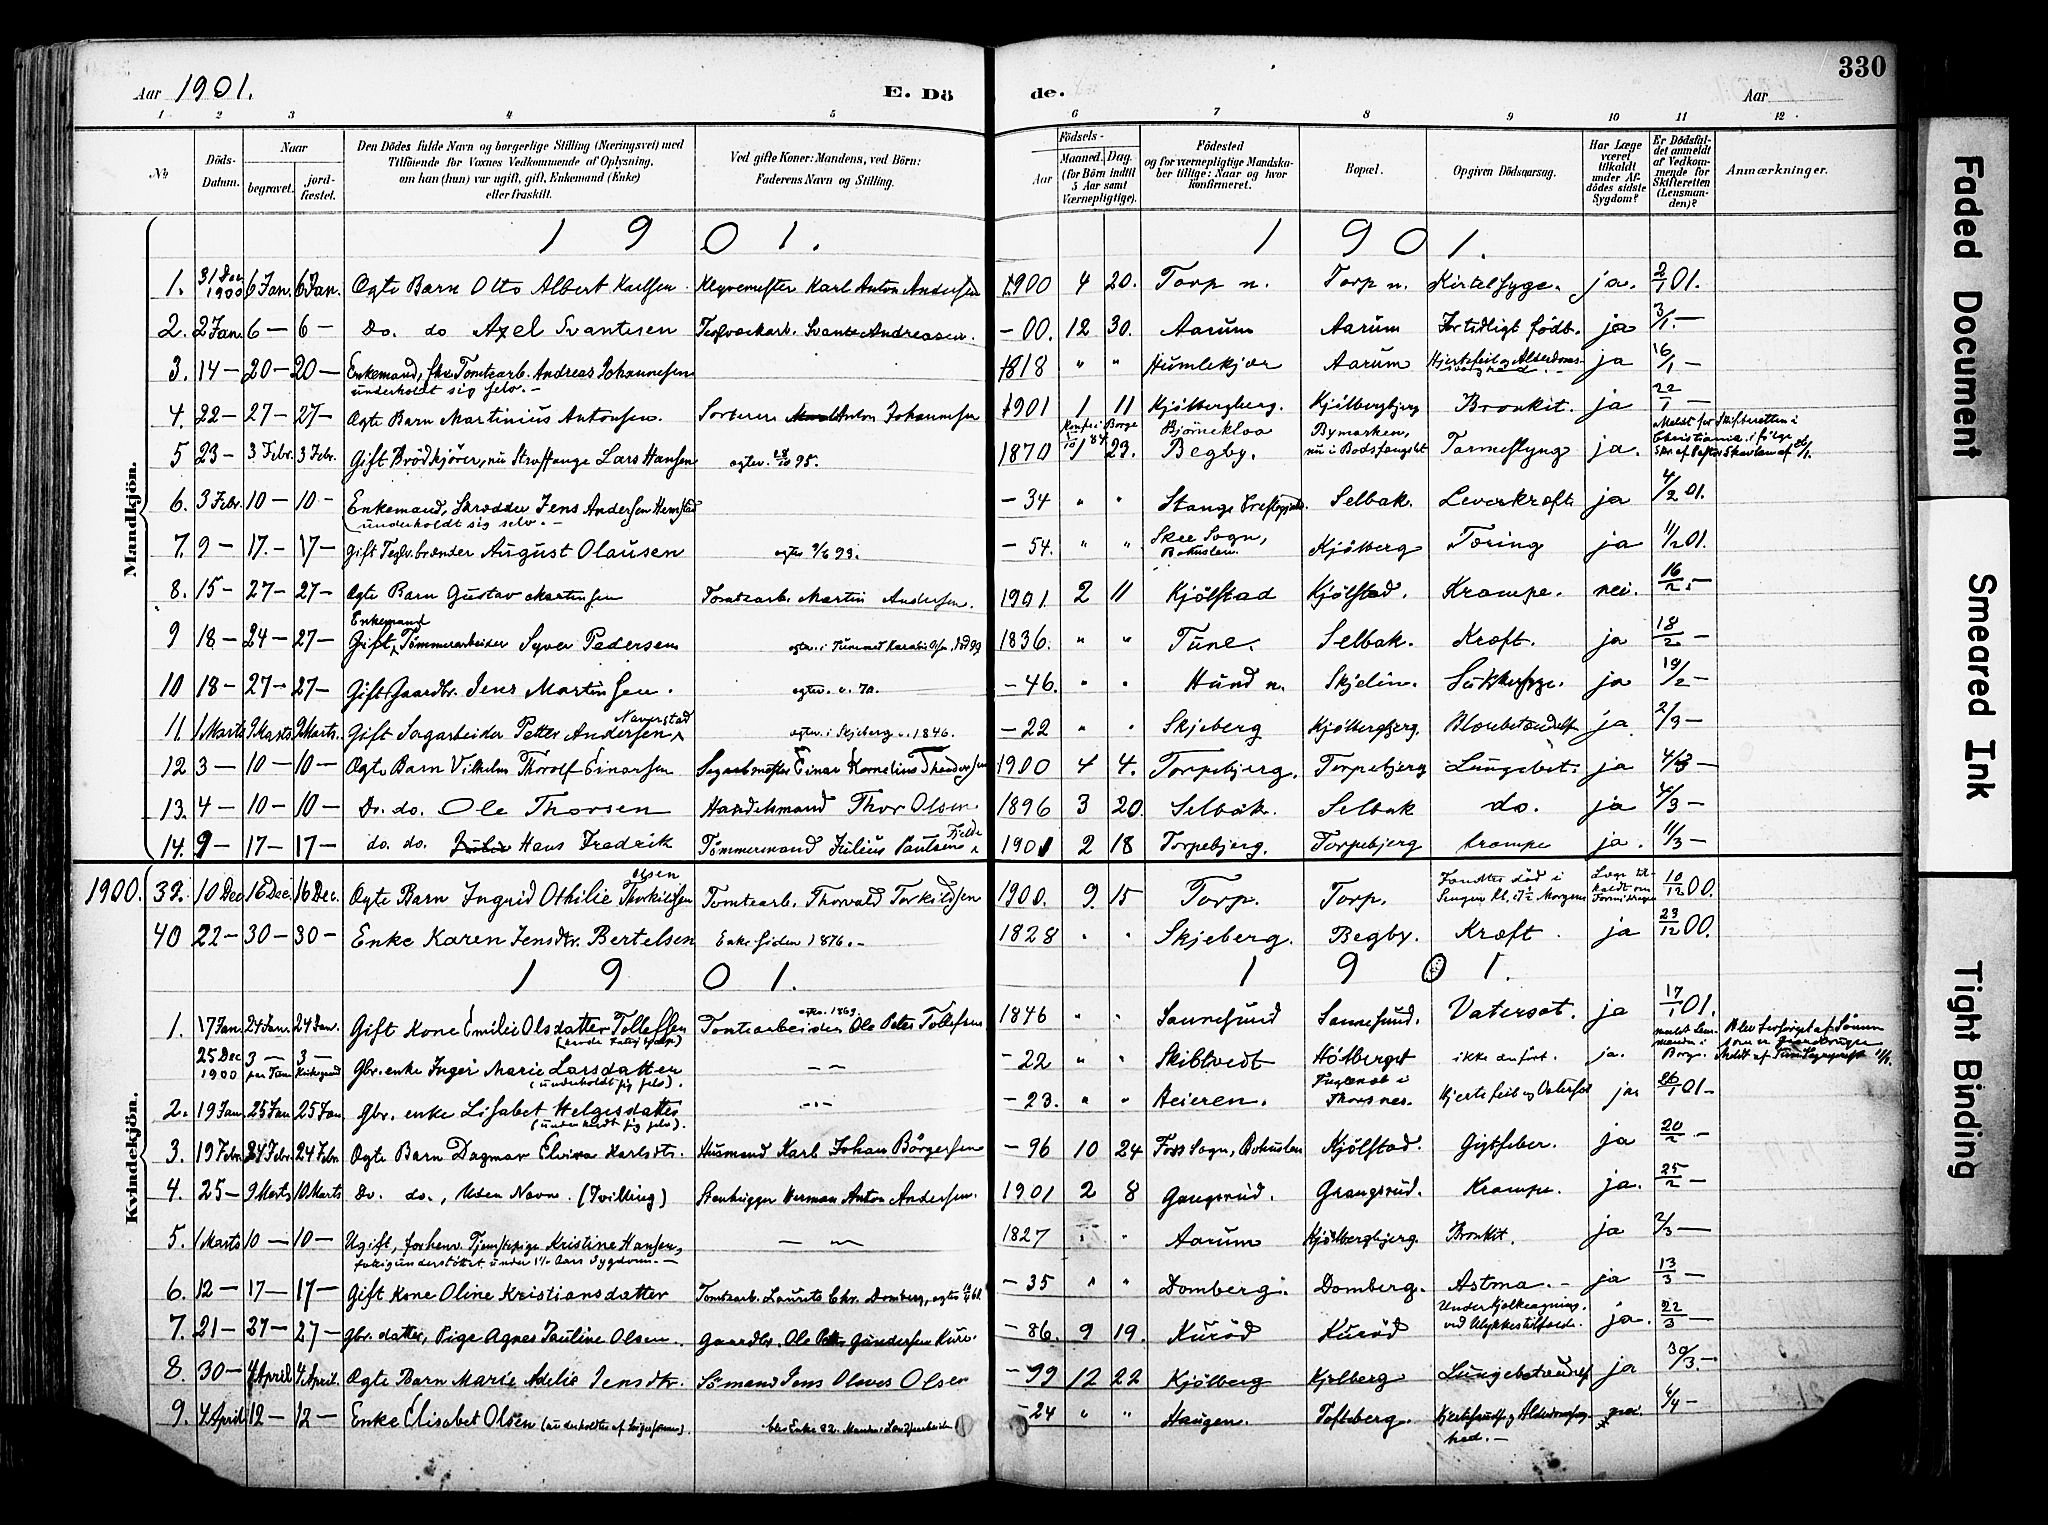 330
Aar 1901. E. Dö de. Aar
1 2 3 4 5 6 7 8 9 10 11 12
№ Döds-Datum. Naar begravet. jord-fæstet. Den Dödes fulde Navn og borgerlige Stilling (Næringsvei) med Tilföiende for Voxnes Vedkommende af Oplysning, om han (hun) var ugift, gift, Enkemand (Enke) eller fraskilt. Ved gifte Koner: Mandens, ved Börn: Faderens Navn og Stilling. Födsels- Aar Maaned. Dag. (for Börn indtil 5 Aar samt Værnepligtige). Födested og for værnepligtige Mandskaber tillige: Naar og hvor konfirmeret. Bopæl. Opgiven Dödsaarsag. Har Læge været tilkaldt under Afdödes sidste Sygdom? Er Dödsfaldet anmeldt af Vedkommende for Skifteretten (Lensmanden)? Anmærkninger.
Mandkjön.
1 9 0 1. 1 9 0 1.
1. 31 Dec 1900 6 Jan. 6 Jan. Ægte Barn Otto Albert Karlsen. Klyvemester Karl Anton Andersen 1900 4 20. Torp n. Torp n. Kirtelsyge. ja. 2/1 01.
2. 2 Jan. 6 — 6 — Do. do Axel Svantesen Teglverkarb. Svante Andreasen. — 00. 12 30. Aarum Aarum Fortidligt födt. ja 3/1. —
3. 14 — 20 — 20 — Enkemand, fhv. Tomtearb. Andreas Johannesen underholdt sig selv. — 1818 " " Humlekjær Aarum Hjertefeil og Alderdoms- ja 16/1 —
4. 22 — 27 — 27 — Ægte Barn Martinius Antonsen. Sorterer Anton Johannesen 1901 1 11 Kjölbergberg. Kjölbergbjerg Bronkit. ja 22/1 —
5 23 — 3 Febr. 3 Febr. Gift Brödkjörer, nu Straffange Lars Hansen ægtev. 28/10 95. 1870 10/ 84 23. Bjørnekloa Begby. Bymarken, nu i Bodsfængslet Tarmeslyng ja. Meldt for Skifteretten i Christiania
6. 3 Febr. 10 — 10 — Enkemand, Skrædder Jens Andersen Hemstad (underholdt sig selv. — — 34 " " Stange Præstegjeld. Selbak. Leverkræft ja 4/2 01.
7. 9 — 17. — 17 — Gift Teglv.brænder August Olausen ægtev 9/6 93. — 54. " " Skee Sogn, Bohuslen. Kjölberg Tæring ja 11/2 01.
8. 15 — 27 — 27 — Ægte Barn Gustav Martinsen Tomtearb. Martin Andersen. 1901. 2 11 Kjölstad Kjölstad. Krampe. nei. 16/2. —
9 18 — 24 — 27 — Enkemand Gift, Tömmerarbeider Syver Pedersen 1836. " " Tune. Selbak. Kræft. ja 18/2 —
10 18 — 27 — 27 — Gift Gaardbr. Jens Martinsen. ægtev. c. 70. — 46. " " Hund n. Skjelin. Sukkersyge. ja 19/2 —
11. 1 Marts 9 Marts 9 Marts. Gift Sagarbeider Petter Andersen Naverstad ægtev. i Skjeberg c. 1846. — 22 " " Skjeberg Kjölbergbjerg. Blærebetændelse ja 2/3 —
12 3 — 10 — 10 — Ægte Barn Vilhelm Thorolf Einarsen Sagarbmester Einar Kornelius Theodorsen 1900 4 4. Torpebjerg. Torpebjerg Lungebet. ja 4/3 —
13. 4 — 10 — 10 — Do. do. Ole Thorsen Handelsmand Thor Olsen. 1896 3 20. Selbak. Selbak do. ja 4/3 —
14. 9 — 17 — 17 — do. do. Hans Fredrik Tömmermand Julius Paulsen Fjelde 1901 2 18 Torpebjerg. Torpebjerg krampe ja. 11/3 —
Kvindekjön.
1900. 32. 10 Dec 16 Dec. 16 Dec. Ægte Barn Ingrid Othilie Olsen Thorkildsen Tomtearb. Thorvald Torkildsen 1900. 9. 15 Torp. Torp. Fandtes död i Sengen Kl. 4½ Morgenen 10/12 00.
40 22 — 30 — 30 — Enke Karen Jensdtr. Bertelsen Enke siden 1876. — 1828 " " Skjeberg. Begby. Kræft. ja 23/12 00.
1 9 0 1. 1 9 0 1.
1. 17 Jan. 24 Jan. 24 Jan. Gift Kone Emilie Olsdatter Tollefsen ægtev. 1869. Tomtearbeider Ole Peter Tollefsen 1846 " " Sannesund Sannesund. Vatersot. ja 17/1 01.
25 Dec 1900 3 — 3 — Gbr. enke Inger Marie Larsdatter (underholdt sig selv). — — — 22 " " Skibtvedt Hötberget ikke anfört. ja. Blev forsörget af Sönnen som er Gaardbruger
2. 19 Jan. 25 Jan 25 Jan Gbr. enke Lisabet Helgesdatter (underholdt sig selv). — — — 23. " " Aeieren. Fuglevik i Thorsnes. Hjertefeil og Vatersot ja 26/1 01 —
3. 19 Febr. 24 Febr. 24 Febr Ægte Barn Dagmar Elvira Karlsdtr. Husmand Karl Johan Börgersen — 96 10 24 Foss Sogn, Bohuslen Kjölstad. Gigtfeber. ja 20/2 —
4. 25 — 9 Marts 10 Marts Do. do., Uden Navn. (Tvilling) Stenhugger Herman Anton Andersen. 1901 2 8 Gangsrud. Grangsrud. Krampe. ja. 25/2 —
5. 1 Marts 10 — 10 — Ugift, forhenv. Tjenstepige Kristine Hansen, fattigunderstöttet under 1½ Aars Sygdom. — — — 1827 " " Aarum Kjölbergbjerg. Bronkit. ja 2/3 —
6. 12 — 17 — 17 — Gift Kone Oline Kristiansdatter Tomtearb. Laurits Chr. Domberg, ægtev — 35 " " Domberg. Domberg. Astma. — ja 13/3 —
7. 21 — 27 — 27 — Gbr. datter, Pige Agnes Pauline Olsen. Gaardbr. Ole Gundersen Kuröd — 86. 9 19. Kuröd Kuröd ved Ulykkestilfælde. ja. 22/3 —
8. 30 — 4 April 4 April. Ægte Barn Marie Adelie Jensdtr. Sömand Jens Olaves Olsen — 99 12 22 Kjölberg Kjölberg Lungebetændelse ja 30/3. —
9. 4 April 12 — 12 — Enke Elisabet Olsen (underholdtes af Svigersönnen). blev Enke 82. — 24 " " Haugen. Tofteberg. nei. 6/4 —
Faded Document
Smeared Ink
Tight Binding